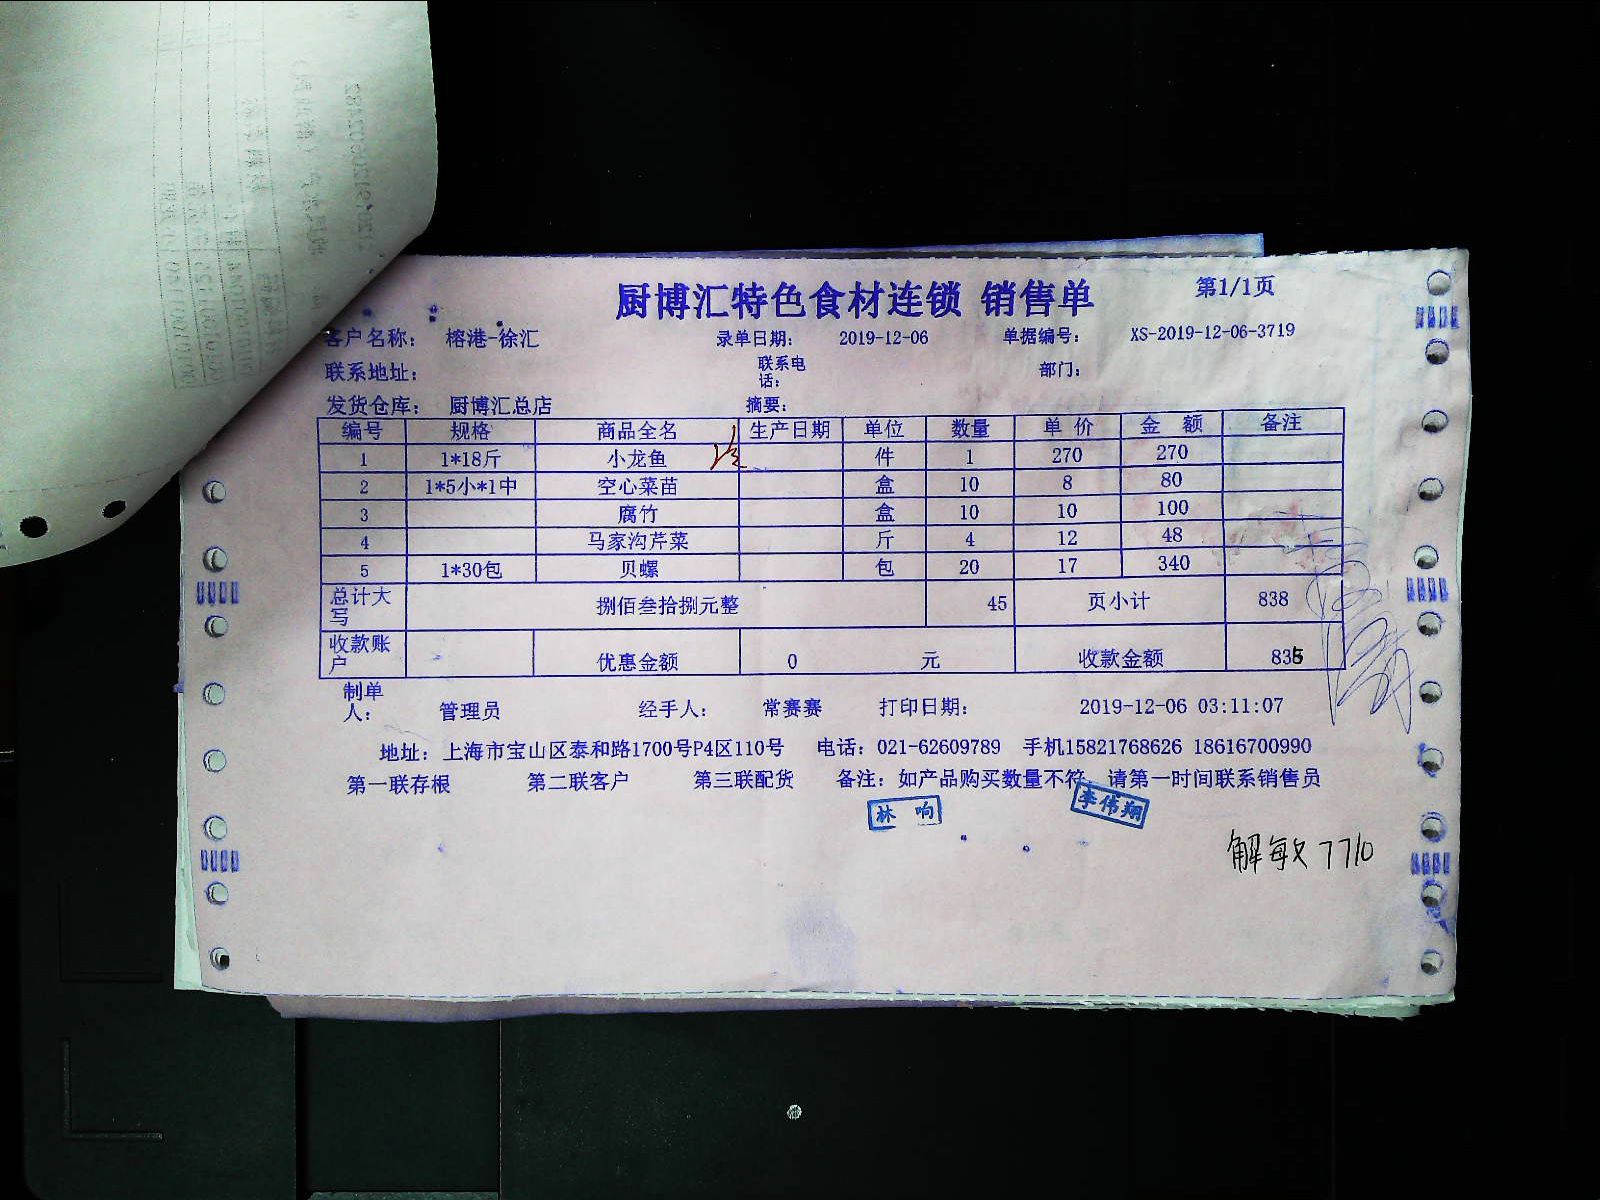 厨博汇特色食材连锁 销售单 第1/1页
客户名称： 榕港-徐汇 录单日期： 2019-12-06 单据编号： XS-2019-12-06-3719
联系地址： 联系电话： 部门：
发货仓库： 厨博汇总店 摘要：
编号 规格 商品全名 生产日期 单位 数量 单 价 金 额 备注
1 1*18斤 小龙鱼 件 1 270 270
2 1*5小*1中 空心菜苗 盒 10 8 80
3 腐竹 盒 10 10 100
4 马家沟芹菜 斤 4 12 48
5 1*30包 贝螺 包 20 17 340
总计大写 捌佰叁拾捌元整 45 页小计 838
收款账户 优惠金额 0 元 收款金额 835
制单人： 管理员 经手人： 常赛赛 打印日期： 2019-12-06 03:11:07
地址：上海市宝山区泰和路1700号P4区110号 电话：021-62609789 手机15821768626 18616700990
第一联存根 第二联客户 第三联配货 备注：如产品购买数量不符，请第一时间联系销售员
林 响 李伟翔
解敏 7710